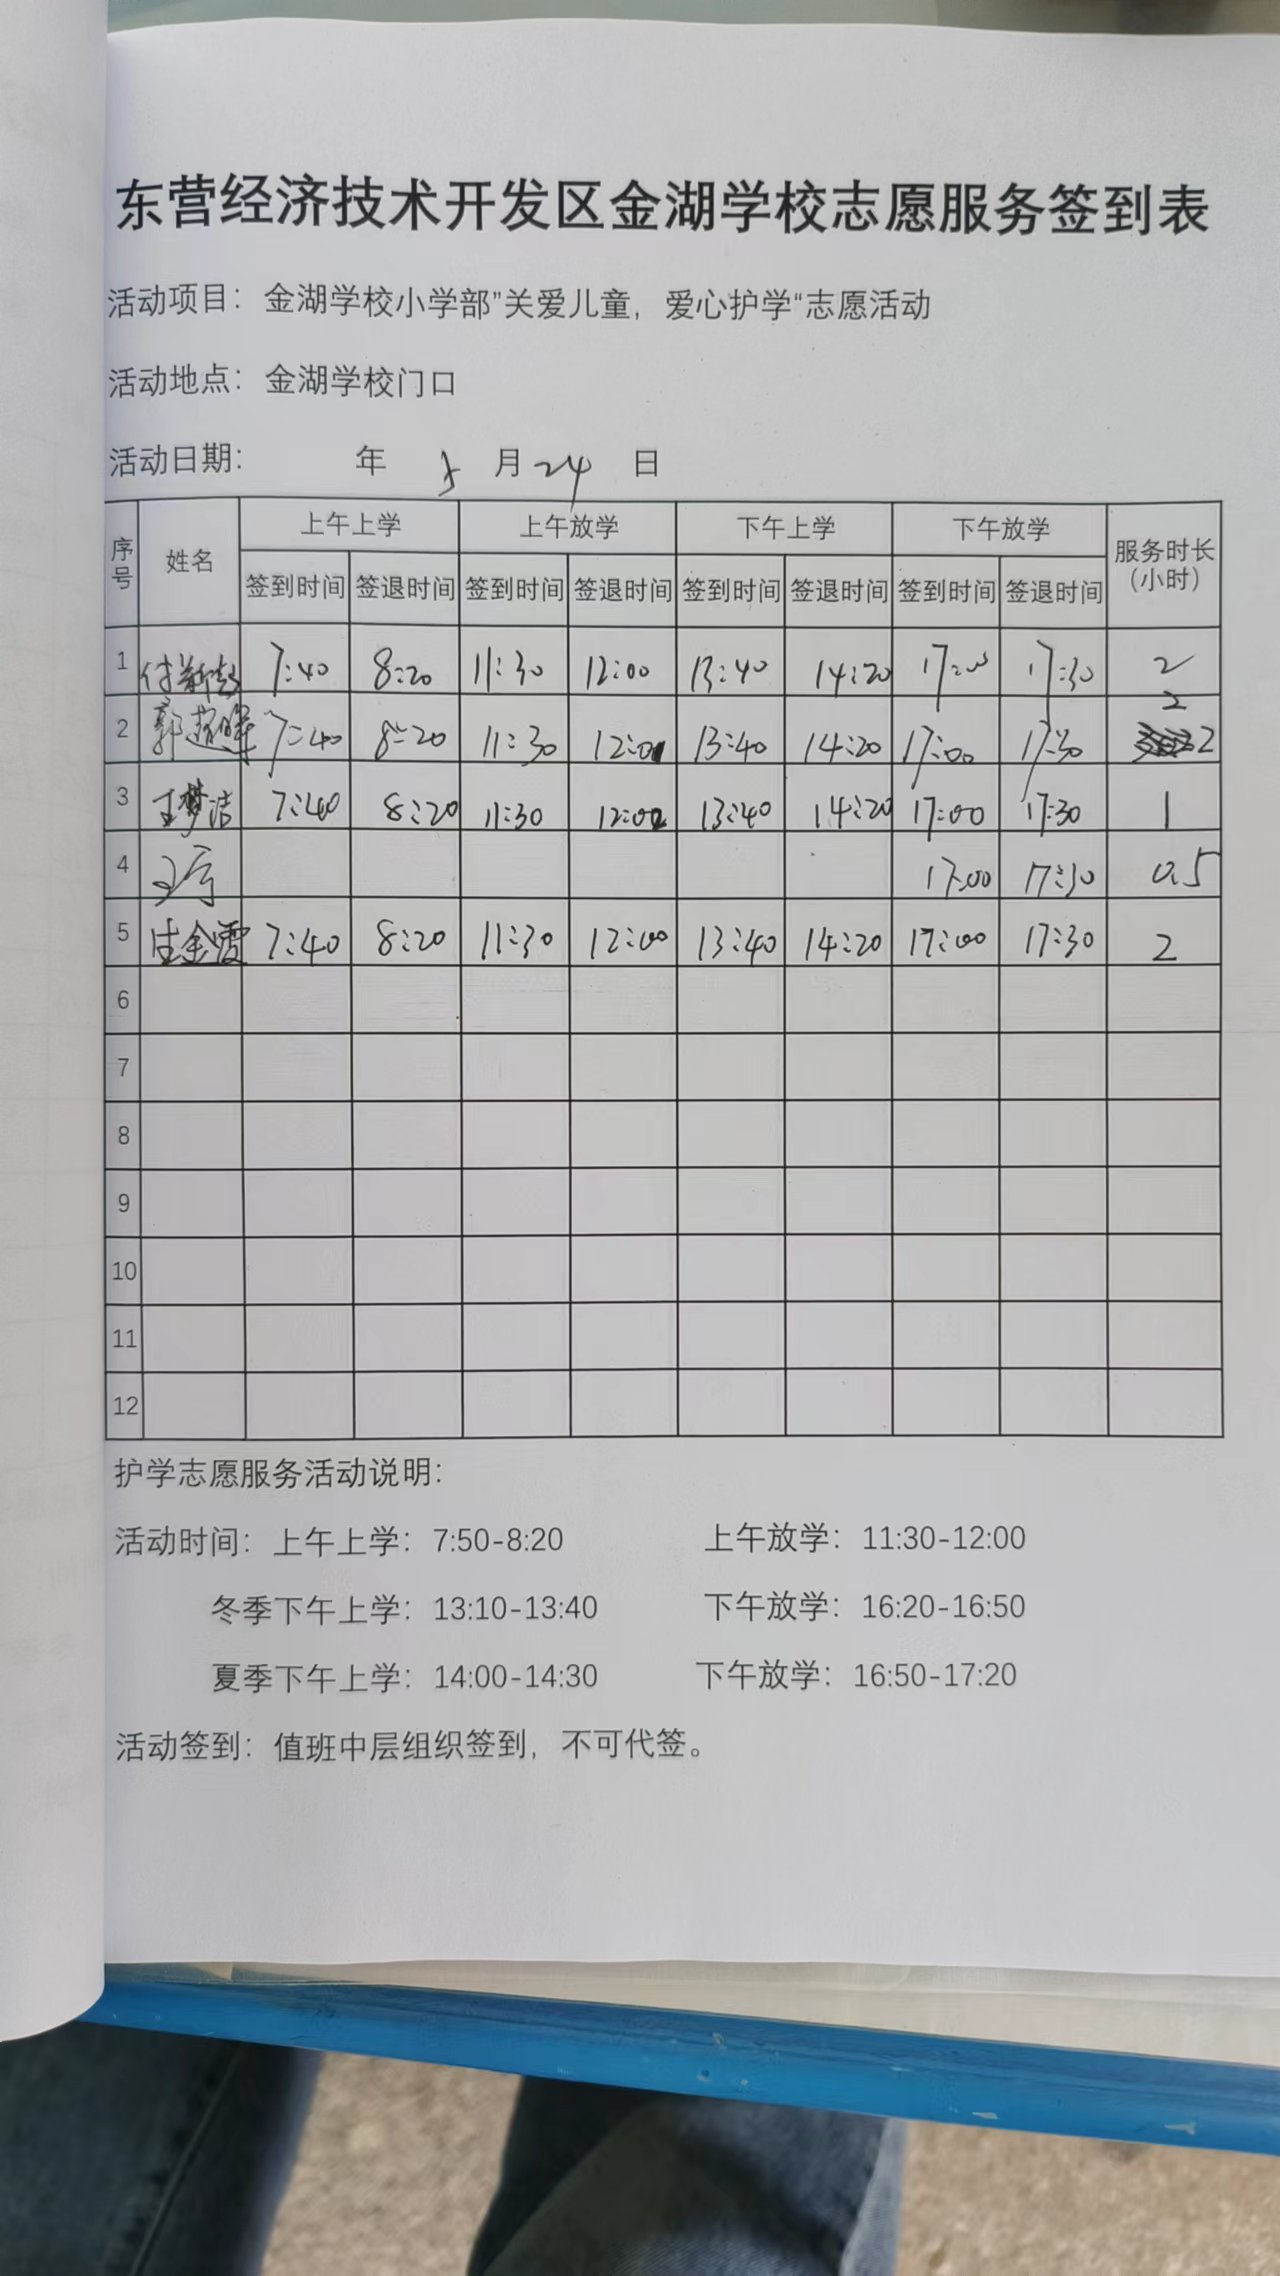 东营经济技术开发区金湖学校志愿服务签到表
活动项目：金湖学校小学部”关爱儿童，爱心护学“志愿活动
活动地点：金湖学校门口
活动日期： 年 5 月 24 日
序号 姓名 上午上学 上午放学 下午上学 下午放学 服务时长（小时）
签到时间 签退时间 签到时间 签退时间 签到时间 签退时间 签到时间 签退时间
1 7:40 8:20 11:30 12:00 13:40 14:20 17:00 17:30 2
2 7:40 8:20 11:30 12:00 13:40 14:20 17:00 17:30 2 2
3 王梦洁 7:40 8:20 11:30 12:00 13:40 14:20 17:00 17:30 1
4 17:00 17:30 0.5
5 金霞 7:40 8:20 11:30 12:00 13:40 14:20 17:00 17:30 2
6
7
8
9
10
11
12
护学志愿服务活动说明：
活动时间：上午上学：7:50-8:20 上午放学：11:30-12:00
冬季下午上学：13:10-13:40 下午放学：16:20-16:50
夏季下午上学：14:00-14:30 下午放学：16:50-17:20
活动签到：值班中层组织签到，不可代签。